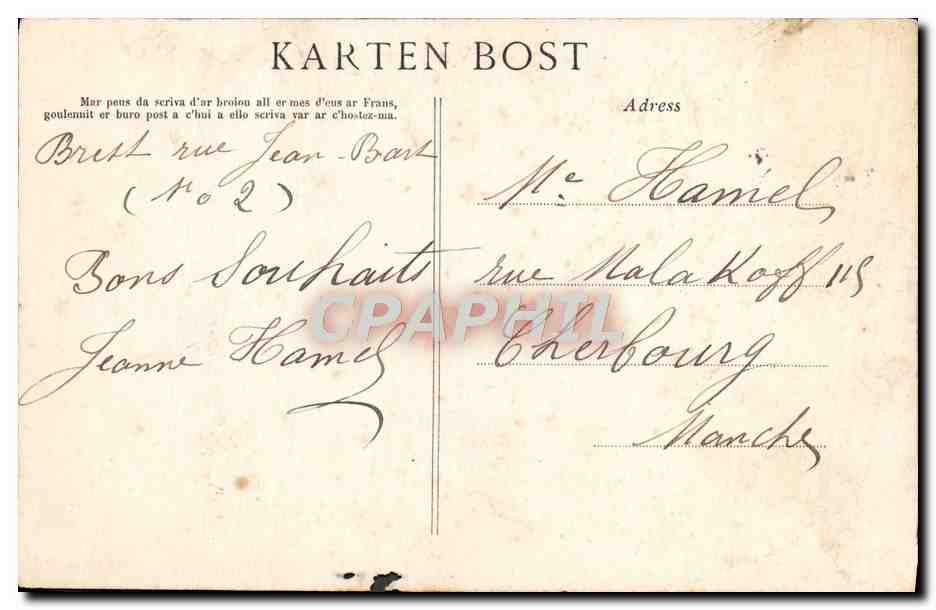 KARTEN BOST
Mar peus da scriva d'ar broiou all er mes d'eus ar Frans,
goulennit er buro post a c'hui a ello scriva var ar c'hostez-ma.
Brest rue Jean-Bart
(No 2)
Bons Souhaits
Jeanne Hamel
Adress
Me. Hamel
rue Malakoff 115
Cherbourg
Manche
CPAPHIL